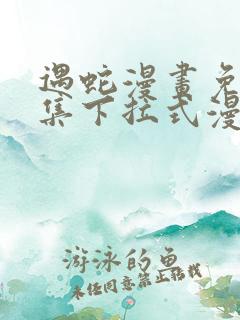 遇蛇漫畫免
集下拉式漫
游泳的鱼
未经同意禁止转载